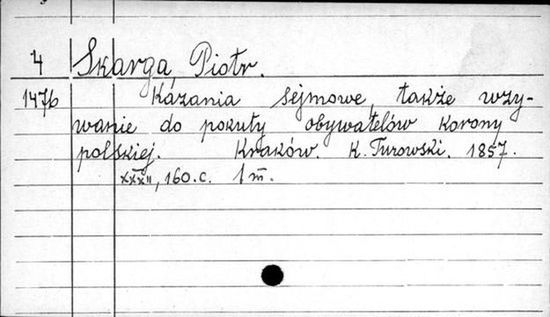 4 Skarga, Piotr.
1476 Kazania sejmowe, także wzy-
wanie do pokuty obywatelów korony
polskiej. Kraków. K. Turowski. 1857.
XXXII, 160.c. 1 m.